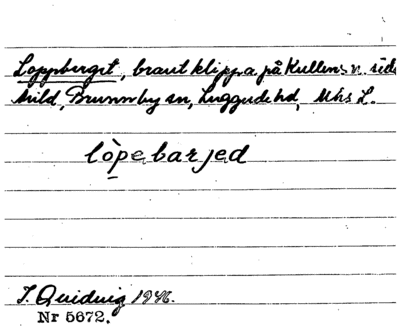 Loppberget, brant klippa på Kullens n. sida
Arild, Brunnby sn, Luggude hd, Mhs L.
lòpebarjed
1946.
Nr 5672.